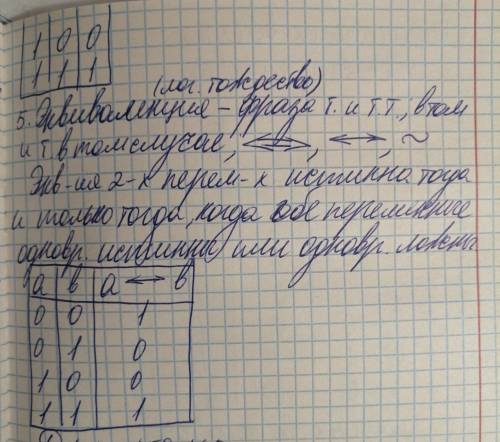 1 0 0
1 1 1
(лог. тождество)
5. Эквиваленция – фраза т. и т.т., в том
и т. в том случае, ⟺, ⟷, ~
Экв-ия 2-х перем-х истинна тогда
и только тогда, когда обе переменные
одновр. истинны или одновр. ложны
а в а ⟷ в
0 0 1
0 1 0
1 0 0
1 1 1